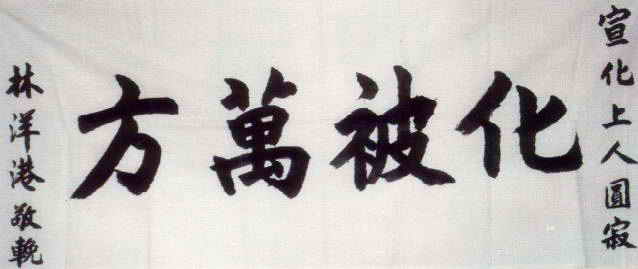 宣化上人圓寂
化被萬方
林洋港敬輓